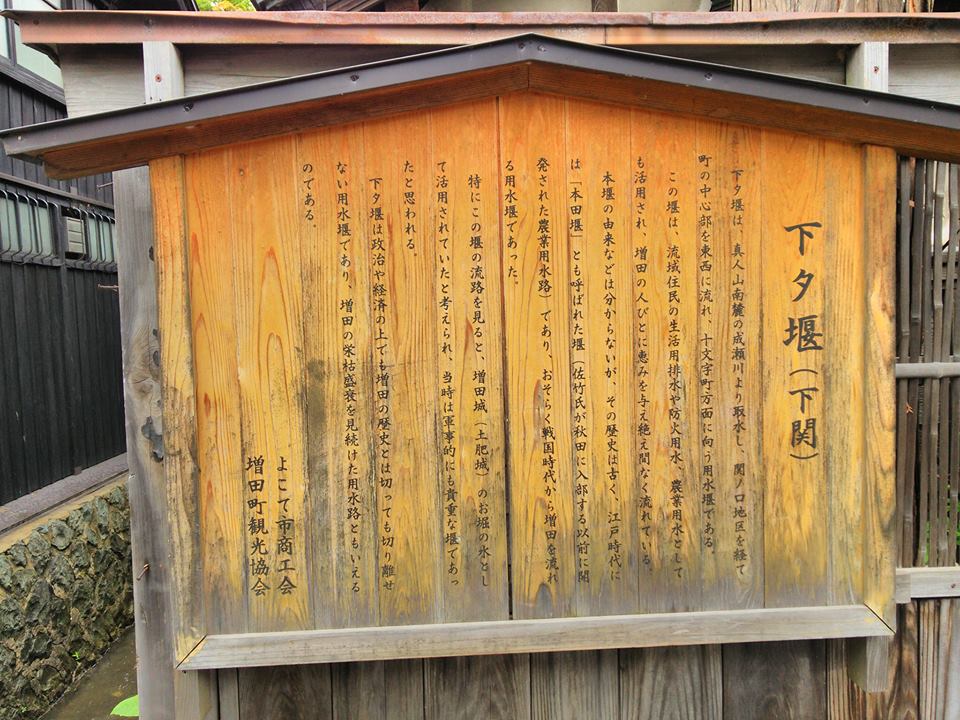 下タ堰(下関)
下タ堰は、真人山南麓の成瀬川より取水し、関ノ口地区を経て
町の中心部を東西に流れ、十文字町方面に向う用水堰である
この堰は、流域住民の生活用排水や防火用水、農業用水として
も活用され、増田の人びとに恵みを与え絶え間なく流れている
本堰の由来などは分からないが、その歴史は古く、江戸時代に
は「本田堰」とも呼ばれた堰(佐竹氏が秋田に入部する以前に開
発された農業用水路)であり、おそらく戦国時代から増田を流れ
る用水堰であった。
特にこの堰の流路を見ると、増田城(土肥城)のお堀の水とし
て活用されていたと考えられ、当時は軍事的にも貴重な堰であっ
たと思われる。
下タ堰は政治や経済の上でも増田の歴史とは切っても切り離せ
ない用水堰であり、増田の栄枯盛衰を見続けた用水路ともいえる
のである。
よこて市商工会
増田町観光協会